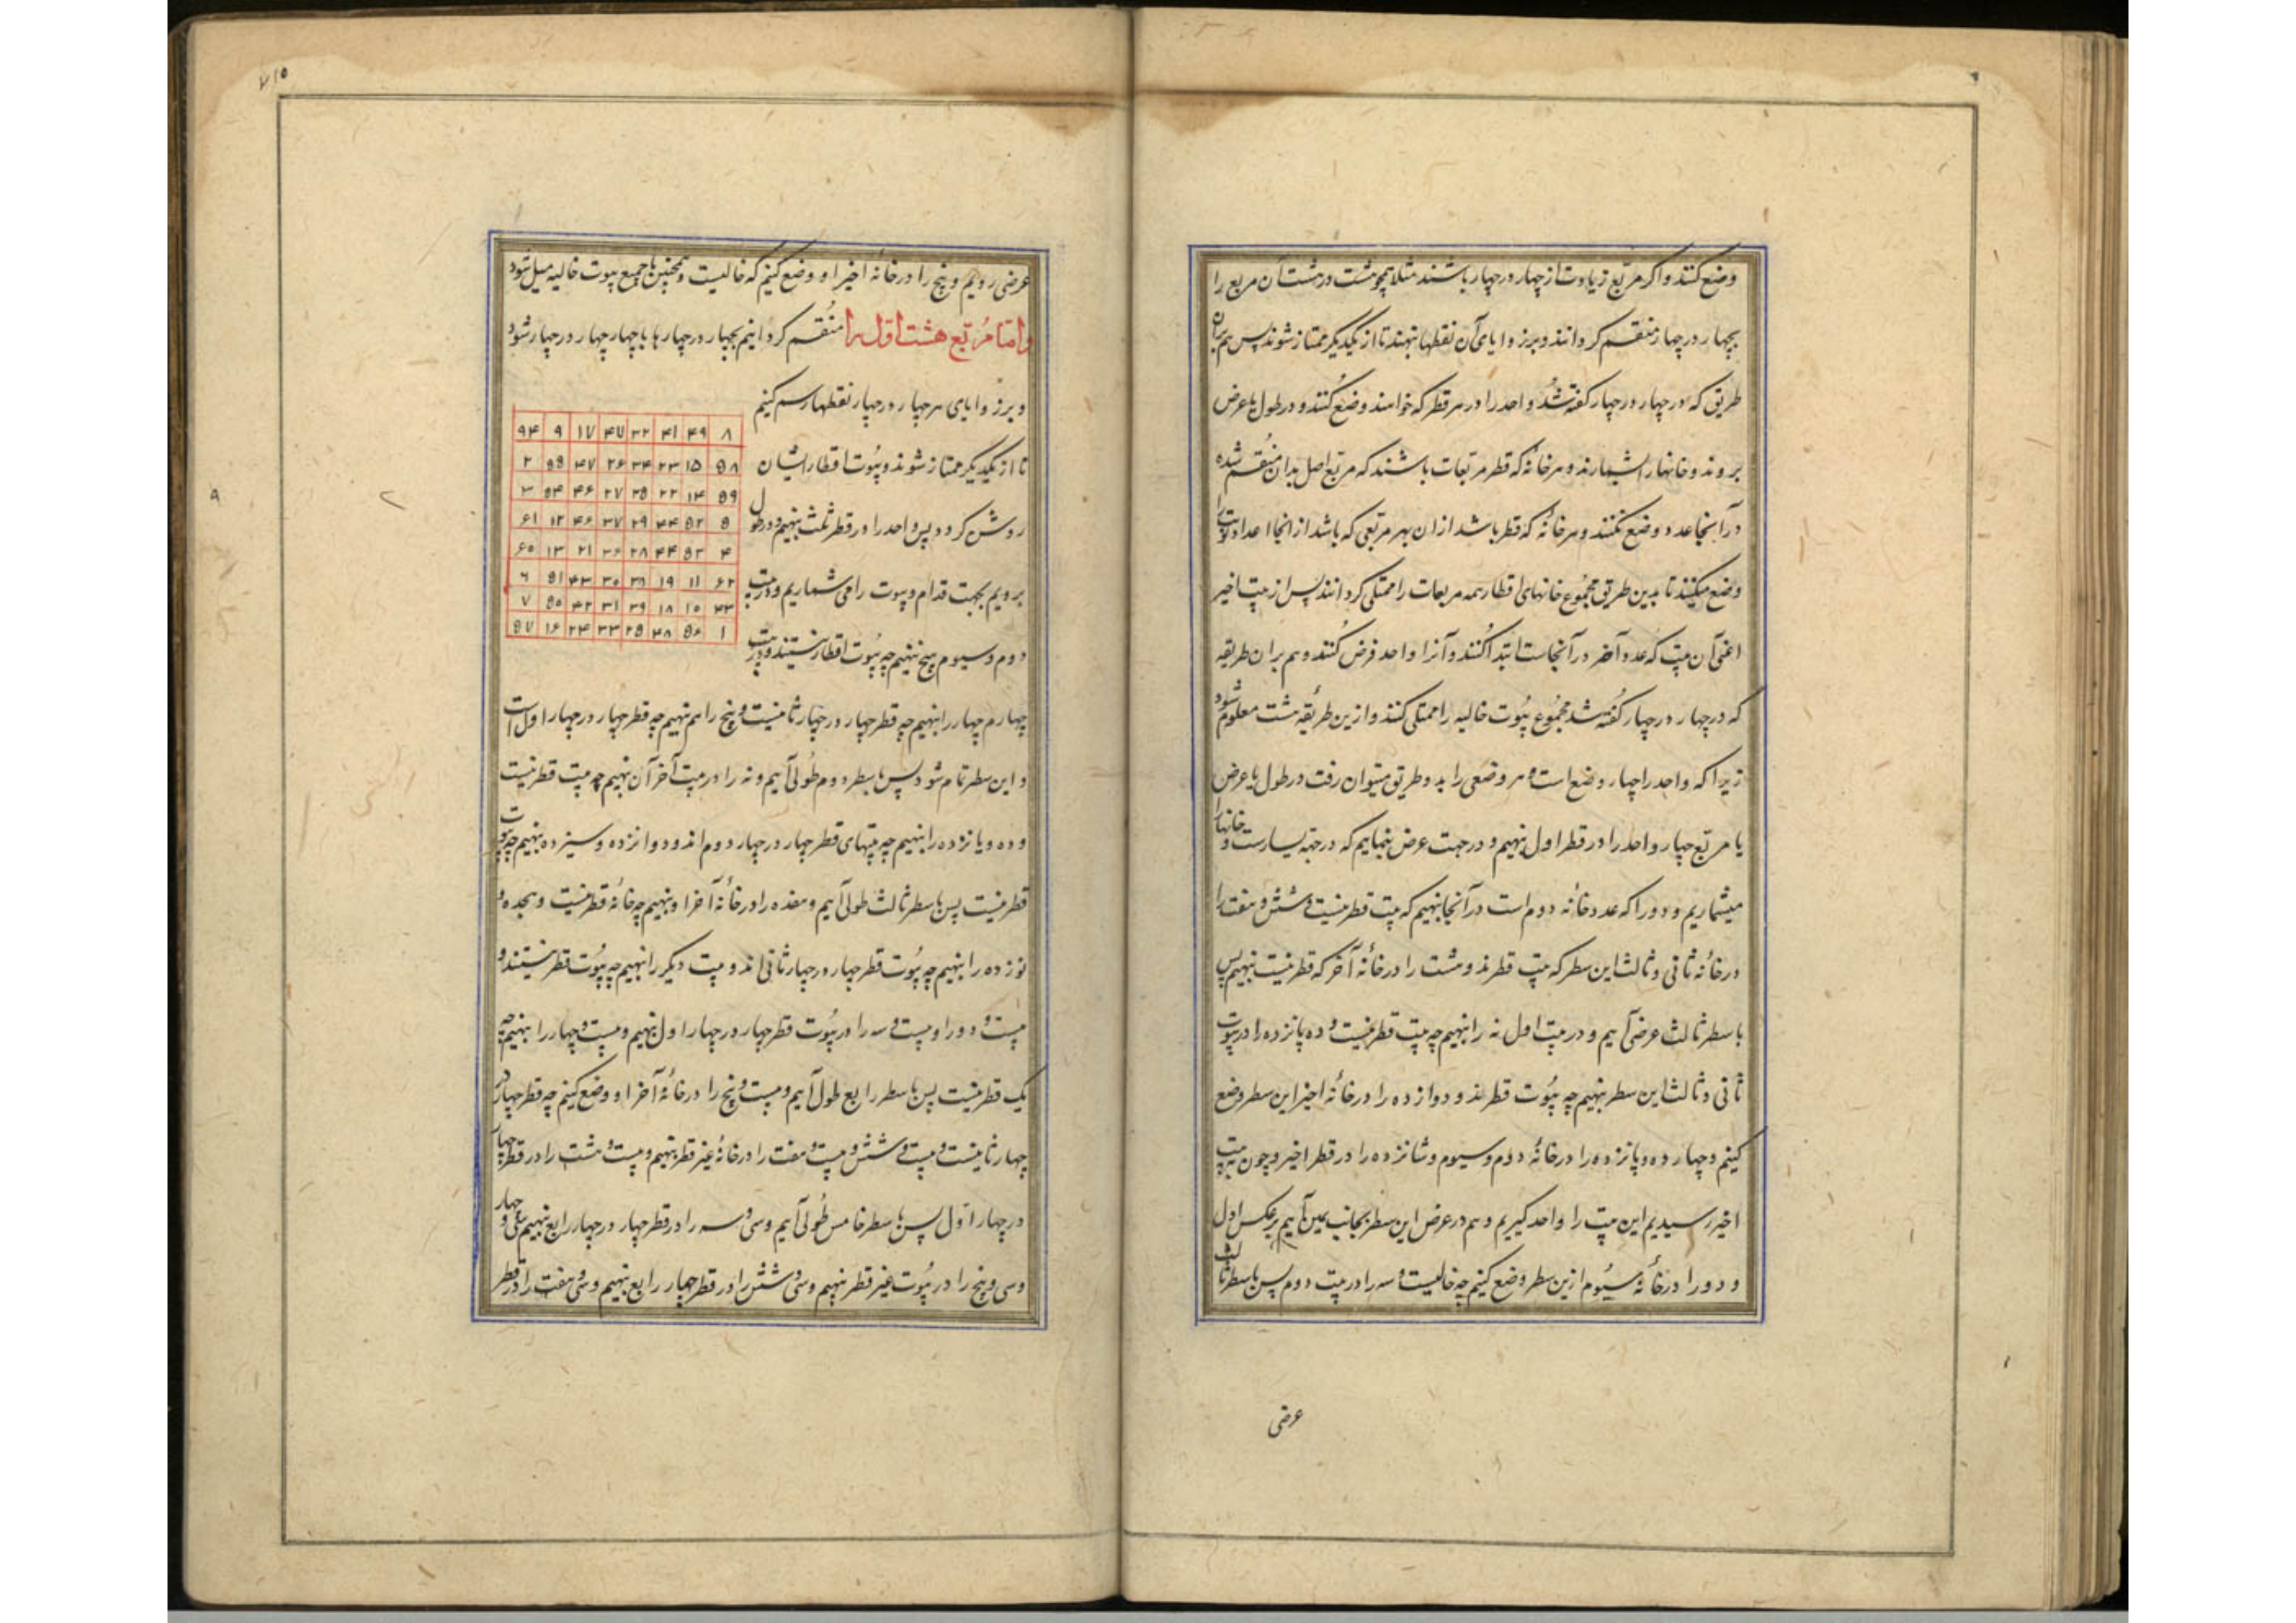 وضع کنند و اکر مربع زیادت از چهار در چهار باشند مثلا همچو هشت در هشت آن مربع را
بچهار در چهار منقسم کردانند و بر زوایای آن نقطها نهند تا از یکدیکر ممتاز شوند پس هم بران
طریق که در چهار در چهار کفته شد واحد را در هر قطر که خواهند وضع کنند و در طول یا عرض
بروند و خانها را شمارند و هر خانه که قطر مربعات باشند که مربع اصل بدان منقسم شده
در آنجا عدد وضع نکنند و هر خانه که قطر باشد از ان بهر مربعی که باشد از انجا اعداد را
وضع میکنند تا بدین طریق مجموع خانهای اقطار همه مربعات را ممتلی کردانند پس از بیت اخیر
اعنی آن بیت که عدد آخر در آنجاست ابتدا کنند و آنرا واحد فرض کنند و هم بران طریقه
که در چهار در چهار کفته شد مجموع بیوت خالیه را ممتلی کنند و ازین طریقه هشت معلوم شود
زیرا که واحد را چهار وضع است و هر وضعی را بدو طریق میتوان رفت در طول یا عرض
یا مربع چهار واحد را در قطر اول نهیم و در جهت عرض بنماییم که در جهة یسارست و خانها را
میشماریم و دو را که عدد خانه دوم است در آنجا بنهیم که بیت قطر نیست و شش و هفت را
در خانه ثانی و ثالث این سطر که بیت قطرند و هشت را در خانه آخر که قطر نیست بنهیم پس
با سطر ثالث عرضی آییم و در بیت اول نه را بنهیم چه بیت قطر نیست و ده یازده را در بیوت
ثانی و ثالث این سطر بنهیم چه بیوت قطرند و دوازده را در خانه اخیر این سطر وضع
کنیم و چهارده و پانزده را در خانه دوم و سیوم و شانزده را در قطر اخیر و چون به بیت
اخیر رسیدیم این بیت را واحد کیریم و هم در عرض این سطر بجانب یمین آییم بر عکس اول
و دو را در خانه سیوم ازین سطر وضع کنیم چه خالیست و سه را در بیت دوم پس با سطر ثالث
عرضی
۷۱۵
عرضی رویم و پنج را در خانه اخیر او وضع کنیم که خالیست و همچنین تا جمیع بیوت خالیه میل شود
و اما مربع هشت اول را منقسم کردانیم بچهار در چهارها یا چهار چهار در چهار شود
و بر زوایای هر چهار در چهار نقطها رسم کنیم
تا از یکدیکر ممتاز شوند و بیوت اقطار ایشان
روشن کردد پس واحد را در قطر ثلث بنهیم و در طول
برویم بجهت قدام و بیوت را می شماریم و در بیت
دوم و سیوم هیچ ننهیم چه بیوت اقطار نیستند و در بیت
۹۴ ۹ ۱۷ ۴۷ ۳۲ ۴۱ ۴۹ ۸
۲ ۵۵ ۴۷ ۲۶ ۳۴ ۲۳ ۱۵ ۵۸
۳ ۵۴ ۴۶ ۲۷ ۳۵ ۲۲ ۱۴ ۵۹
۶۱ ۱۲ ۴۶ ۳۷ ۲۹ ۴۴ ۵۲ ۵
۶۰ ۱۳ ۲۱ ۳۶ ۲۸ ۴۴ ۵۳ ۴
۶ ۵۱ ۴۳ ۳۰ ۳۸ ۱۹ ۱۱ ۶۲
۷ ۵۰ ۴۲ ۳۱ ۳۹ ۱۸ ۱۰ ۴۳
۵۷ ۱۶ ۲۴ ۳۳ ۲۵ ۴۸ ۵۶ ۱
چهارم چهار را بنهیم چه قطر چهار در چهار ثانیست و پنج را هم نهیم چه قطر چهار در چهار اول است
و این سطر تمام شود پس با سطر دوم طولی آییم و نه را در بیت آخر آن نهیم چه بیت قطر نیست
و ده و یازده را بنهیم چه بیتهای قطر چهار در چهار دوم اند و دوازده و سیزده بنهیم چه بیوت
قطر نیست پس با سطر ثالث طولی آییم و هفده را در خانه آخر او بنهیم چه خانه قطر نیست و هجده و
نوزده را بنهیم چه بیوت قطر چهار در چهار ثانی اند و بیت دیکر را بنهیم چه بیوت قطر نیستند و
بیست و دو را و بیست و سه را در بیوت قطر چهار در چهار اول نهیم و بیست و چهار را بنهیم چه
یک قطر نیست پس با سطر رابع طول آییم و بیست و پنج را در خانه آخر او وضع کنیم چه قطر چهار در
چهار ثانیست و بیست و شش و بیست و هفت را در خانه غیر قطر بنهیم و بیست و هشت را در قطر چهار
در چهار اول پس با سطر خامس طولی آییم و سی و سه را در قطر چهار در چهار رابع نهیم و سی و چهار
و سی و پنج را در بیوت غیر قطر نهیم و سی و شش را در قطر چهار رابع نهیم و سی و هفت را در قطر